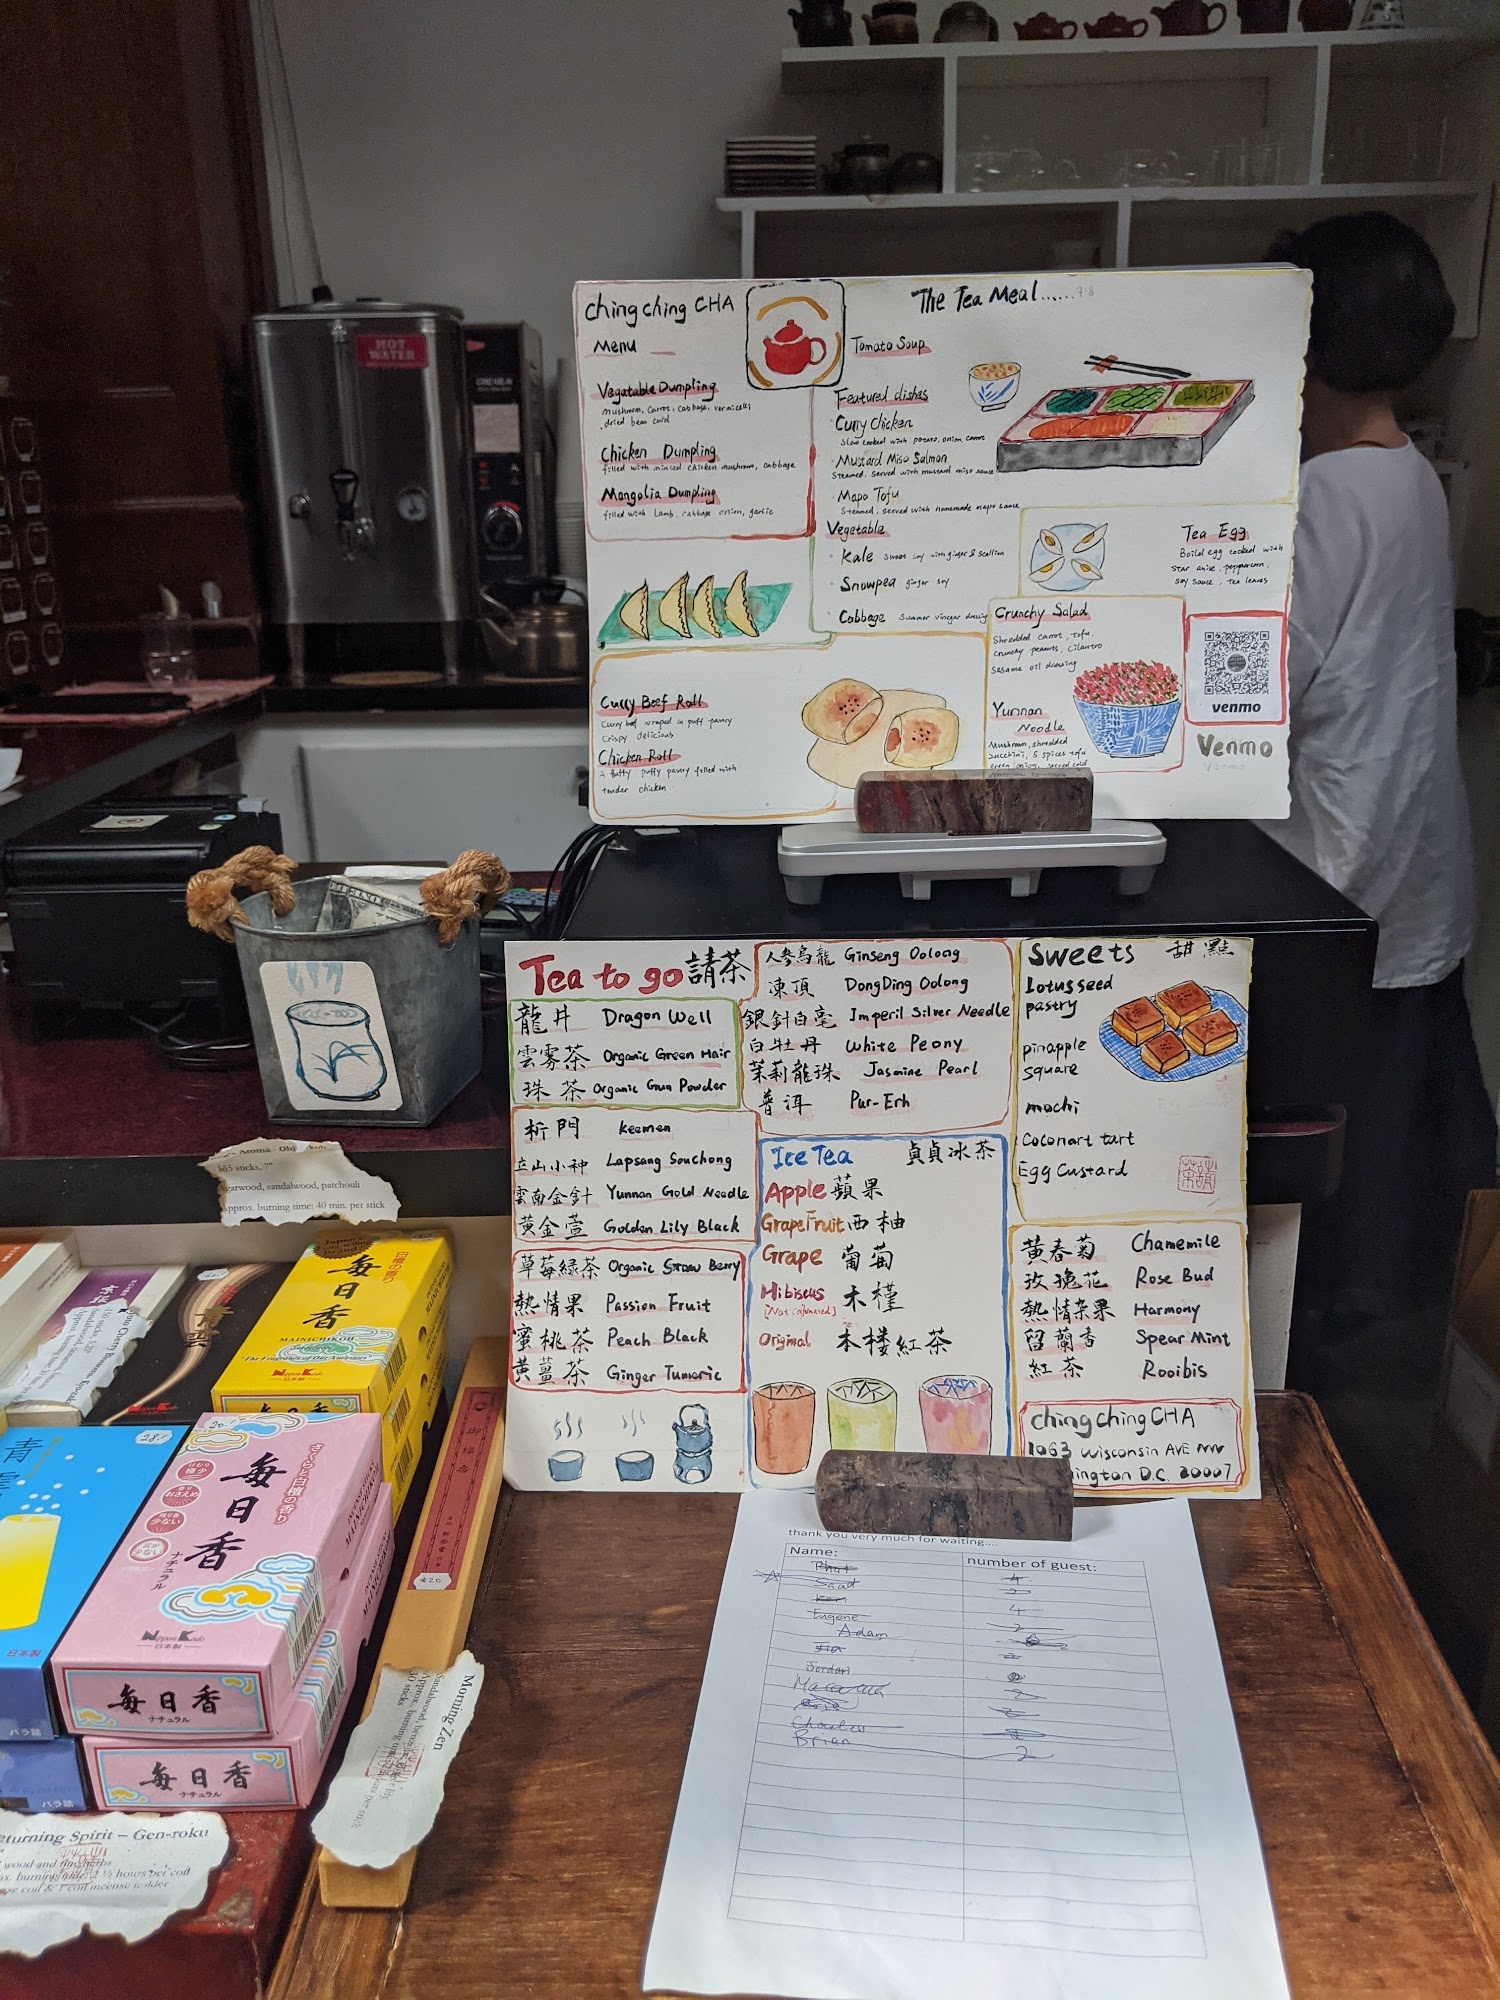 HOT
WATER
ching ching CHA
Menu
Vegatable Dumpling
mushroom, carrot, cabbage, vermicelli
dried bean curd
Chicken Dumpling
filled with minced chicken mushroom, cabbage
Mongolia Dumpling
filled with lamb, cabbage onion, garlic
Curry Beef Roll
Curry beef wraped in puff pastry
Crispy delicious
Chicken Roll
A fluffy puffy pastry filled with
tender chicken
The Tea Meal......
Tomato Soup
Featured dishes
Curry Chicken
Slow cooked with potato, onion, carrot
Mustard Miso Salmon
Steamed, served with mustard miso sauce
Mapo Tofu
Steamed, served with homemade mapo sauce
Vegetable
Kale sweet soy with ginger & scallion
Snowpea ginger soy
Cabbage Summer vinegar dressing
Tea Egg
Boild egg cooked with
star anise, peppercorn,
soy sauce, tea leaves
Crunchy Salad
Shredded carrot, tofu,
crunchy peanuts, cilantro
sesame oil dressing
Yunnan
Noodle
Mushroom, shredded
zucchini, 5 spices tofu
green onion, served cold
venmo
Venmo
Venmo
Tea to go 請茶
龍井 Dragon Well
雲霧茶 Organic Green Hair
珠茶 Organic Gun Powder
祈門 Keemen
立山小种 Lapsang Souchong
雲南金針 Yunnan Gold Needle
黃金萱 Golden Lily Black
草莓綠茶 Organic Straw Berry
熱情果 Passion Fruit
蜜桃茶 Peach Black
黃薑茶 Ginger Tumeric
人參烏龍 Ginseng Oolong
凍頂 DongDing Oolong
銀針白毫 Imperil Silver Needle
白牡丹 White Peony
茉莉龍珠 Jasmine Pearl
普洱 Pur-Erh
Ice Tea 貞貞冰茶
Apple 蘋果
GrapeFruit 西柚
Grape 葡萄
Hibiscus 木槿
[Not Caffinated]
Original 本楼紅茶
Sweets 甜點
lotus seed
pastry
pinapple
square
mochi
Coconart tart
Egg Custard
黃春菊 Chamemile
玫瑰花 Rose Bud
熱情杂果 Harmony
留蘭香 Spear Mint
紅茶 Rooibis
ching ching CHA
1063 Wisconsin AVE NW
ington D.C. 20007
thank you very much for waiting....
Name: number of guest:
Saad
Eugene
Adam
Jordan
Charles
Brian 2
35 sticks, 7"
garwood, sandalwood, patchouli
approx. burning time: 40 min. per stick
毎日香
MAINICHIKOH
"The Fragrance of Our Ancestors"
Nippon Kodo
日本製
青雲
28.-
日本製
バラ詰
20.-
さくらと白檀の香り
毎日香
ナチュラル
Nippon Kodo
日本製
毎日香
ナチュラル
毎日香
ナチュラル
バラ詰
$20
Morning Zen
30 sticks
eturning Spirit – Gen-roku